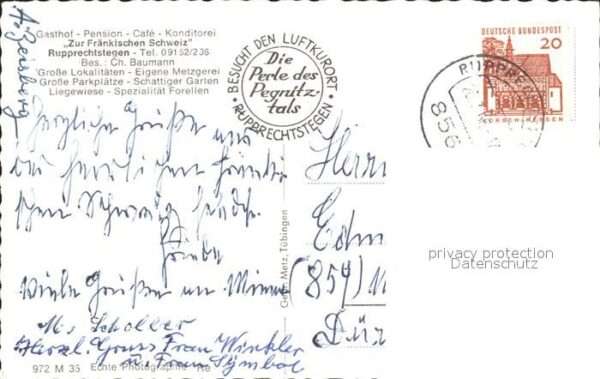 A. Zeisberg
Gasthof - Pension - Café - Konditorei
„Zur Fränkischen Schweiz"
Rupprechtstegen - Tel. 09152/238
Bes.: Ch. Baumann
Große Lokalitäten - Eigene Metzgerei
Große Parkplätze - Schattiger Garten
Liegewiese - Spezialität Forellen
BESUCHT DEN LUFTKURORT · RUPPRECHTSTEGEN ·
Die
Perle des
Pegnitz-
tals
DEUTSCHE BUNDESPOST
20
LORSCH/HESSEN
RUPPRE
856
Herzliche Grüße aus
der herrlichen Fränki-
schen Schweiz
Viele Grüße
M. Scholler
Herzl. Gruss Frau Winkler
u. Frau
Herrn
(859)
Gebr. Metz, Tübingen
972 M 35 Echte Photographie
privacy protection
Datenschutz